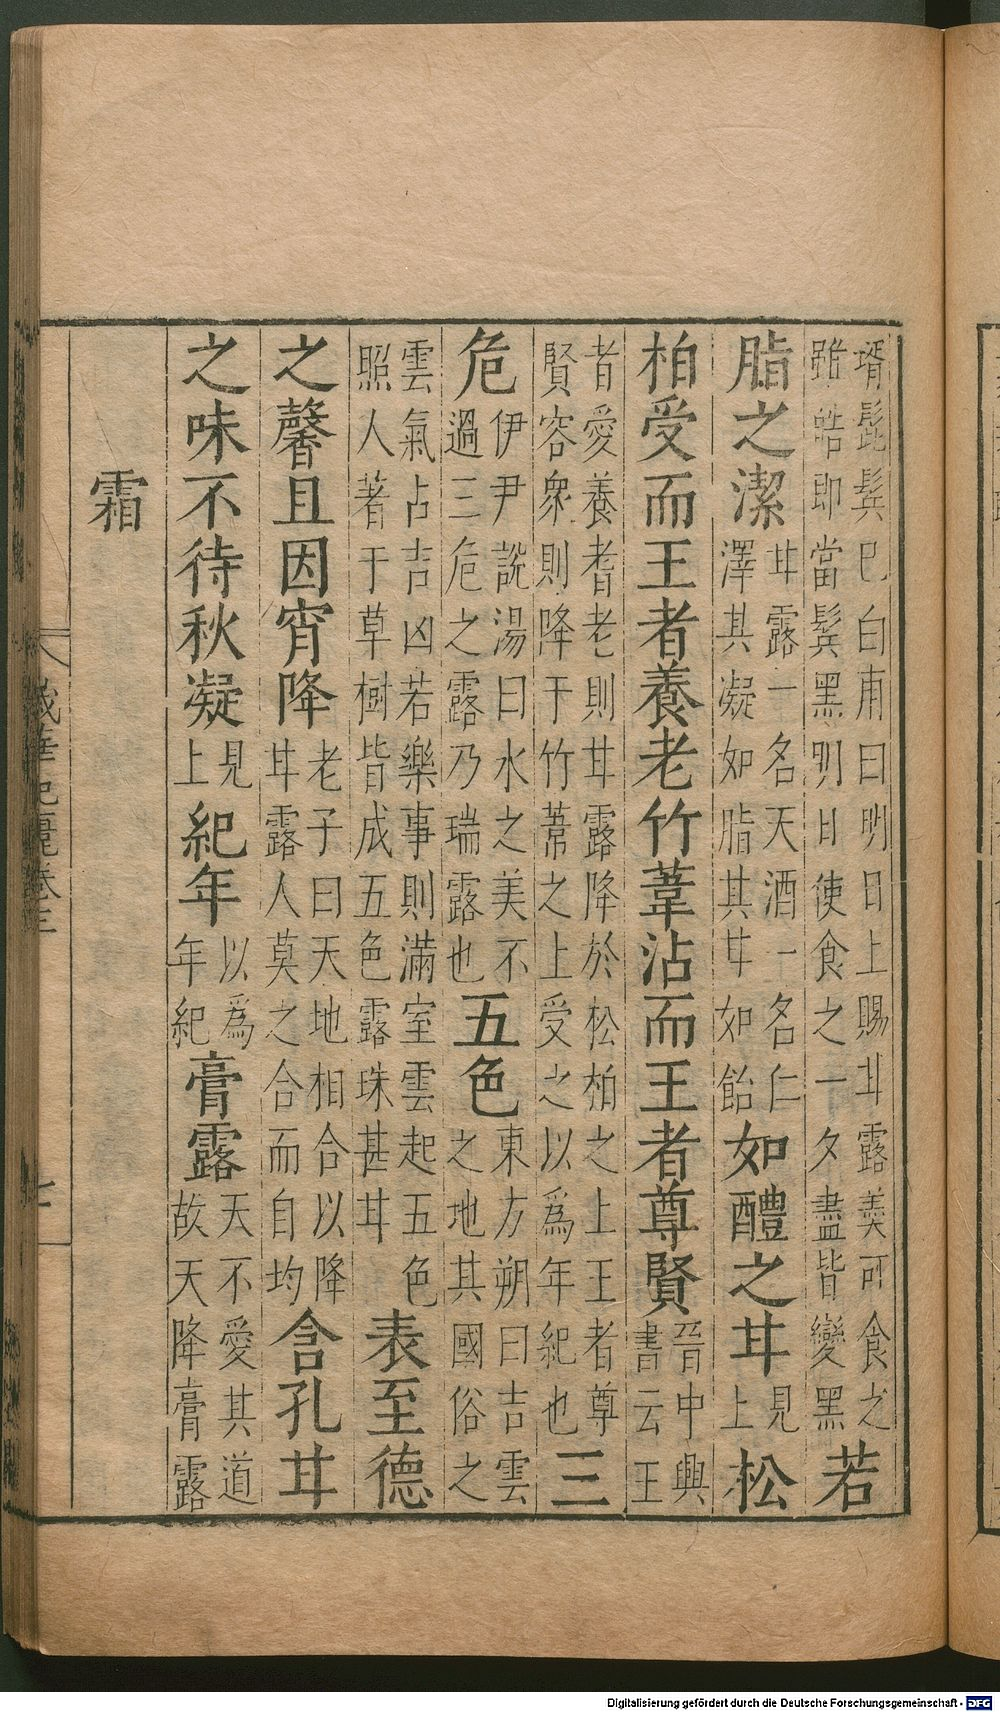 壻髭髩巳白甫曰明日上賜甘露羙可食之雖皓即當鬂黑明日使食之一夕盡皆變黑若
脂之潔甘露一名天酒一名仁澤其凝如脂其甘如飴如醴之甘見上松
柏受而王者養老竹葦沾而王者尊賢晉中興書云王
者愛養耆老則甘露降於松柏之上王者尊賢容衆則降于竹葦之上受之以爲年紀也三
危伊尹說湯曰水之美不過三危之露乃瑞露也五色東方朔曰吉雲之地其國俗之
雲氣占吉凶若樂事則滿室雲起五色照人著于草樹皆成五色露珠甚甘表至德
之馨且因宵降老子曰天地相合以降甘露人莫之合而自均含孔甘
之味不待秋凝見上紀年以爲年紀膏露天不愛其道故天降膏露
霜
歲華紀麗卷三
七
Digitalisierung gefördert durch die Deutsche Forschungsgemeinschaft - DFG